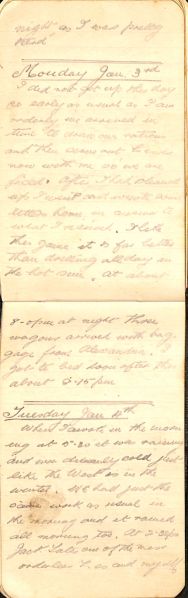 night as I was pretty
tired.
Monday Jan. 3rd
I did not get up this day
so early as usual as I am
orderly we arrived in
time to draw our rations
and they were not
now with me as we are
After I had cleaned
up I went and wrote some
letters home in answer to
what I received. I like
this game it is far better
than drilling all day in
the hot sun. At about
8-0pm at night three
wagons arrived with bag-
gage from Alexandria. I
got to bed soon after this
about 9-15pm
Tuesday Jan 4th
When I awoke in the morn
ing at 5-30 it was raining
and was dreadfully cold just
like the West is in the
winter. We had just the
same work as usual in
the morning and it rained
all morning too. At 2-30pm
Jack one of the mess
orderlies and myself